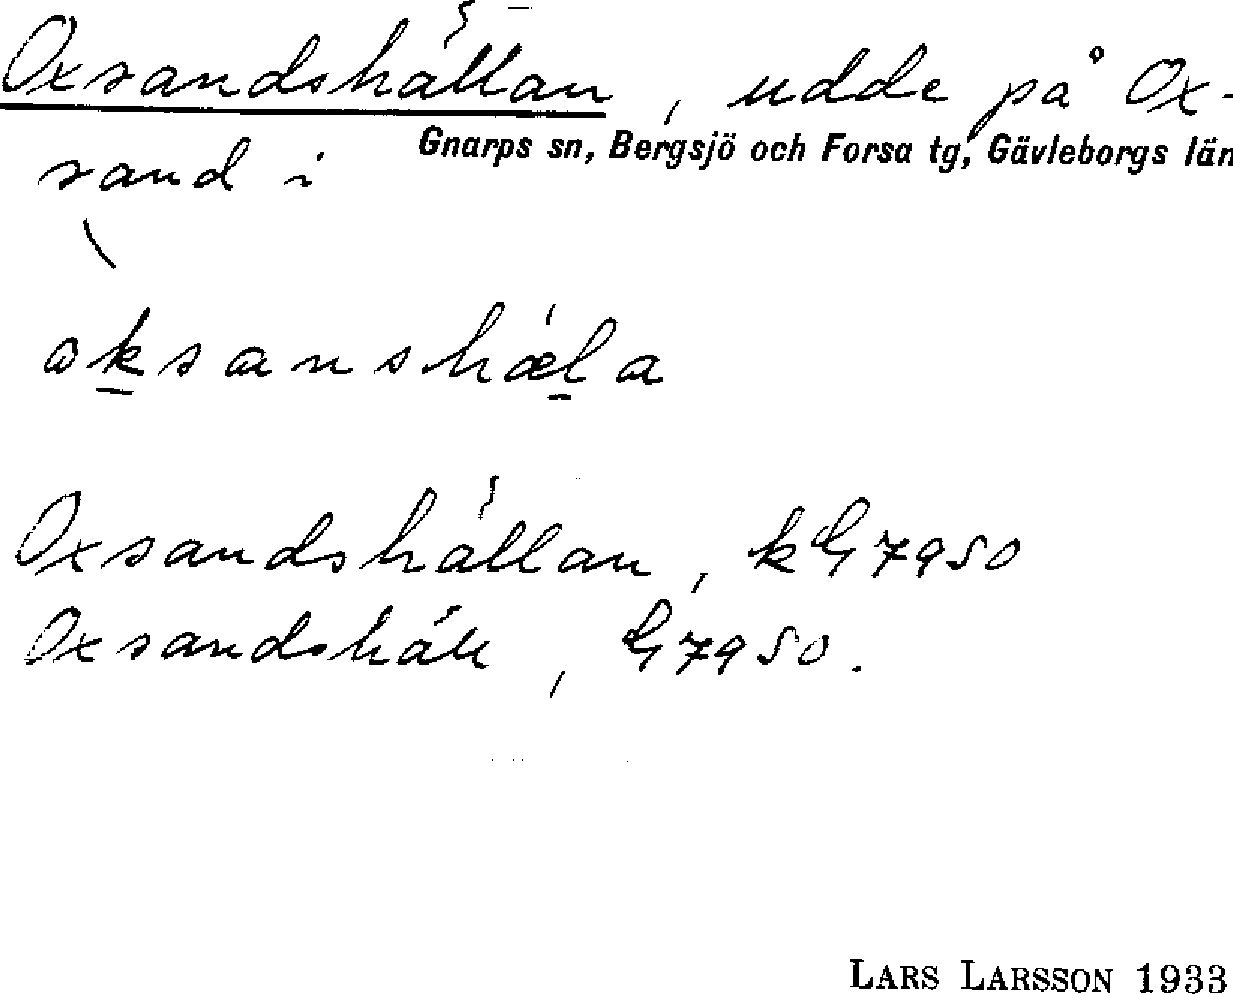 Oxsandshällan, udde på Ox-
Gnarps sn, Bergsjö och Forsa tg, Gävleborgs län
sand i
oksanshæla
Oxsandshällan, kG7950
Oxsandshäll, G7950.
LARS LARSSON 1933